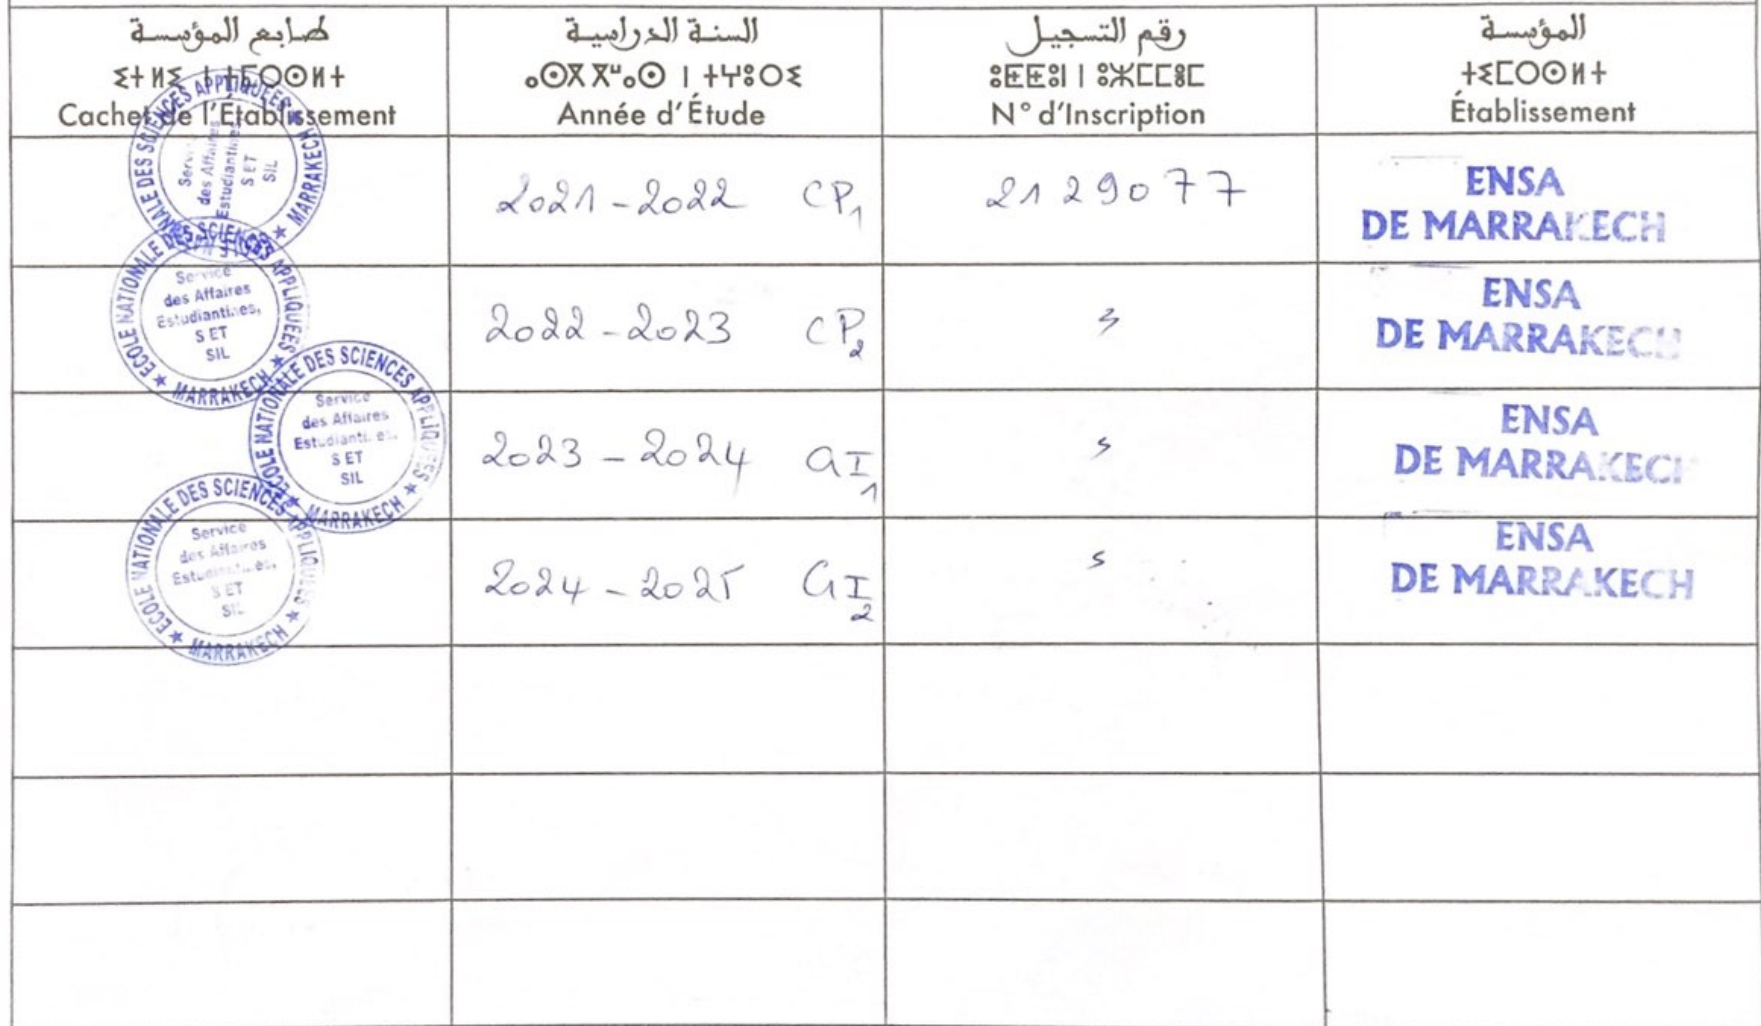 طابع المؤسسة
ⵉⵜⵍⵉ ⵏ ⵜⵎⵙⵙⵍⵜ
Cachet de l'Établissement
السنة الدراسية
ⴰⵙⴳⴳⵯⴰⵙ ⵏ ⵜⵖⵓⵔⵉ
Année d'Étude
رقم التسجيل
N° d'Inscription
المؤسسة
Établissement
ECOLE NATIONALE DES SCIENCES APPLIQUEES ★ MARRAKECH ★
Service
des Affaires
Estudiantines,
S ET
SIL
2021-2022 CP1
2129077
ENSA
DE MARRAKECH
ECOLE NATIONALE DES SCIENCES APPLIQUEES ★ MARRAKECH ★
Service
des Affaires
Estudiantines,
S ET
SIL
2022-2023 CP2
ENSA
DE MARRAKECH
ECOLE NATIONALE DES SCIENCES APPLIQUEES ★ MARRAKECH ★
Service
des Affaires
Estudiantines,
S ET
SIL
2023-2024 GI1
ENSA
DE MARRAKECH
ECOLE NATIONALE DES SCIENCES APPLIQUEES ★ MARRAKECH ★
Service
des Affaires
Estudiantines,
S ET
SIL
2024-2025 GI2
ENSA
DE MARRAKECH